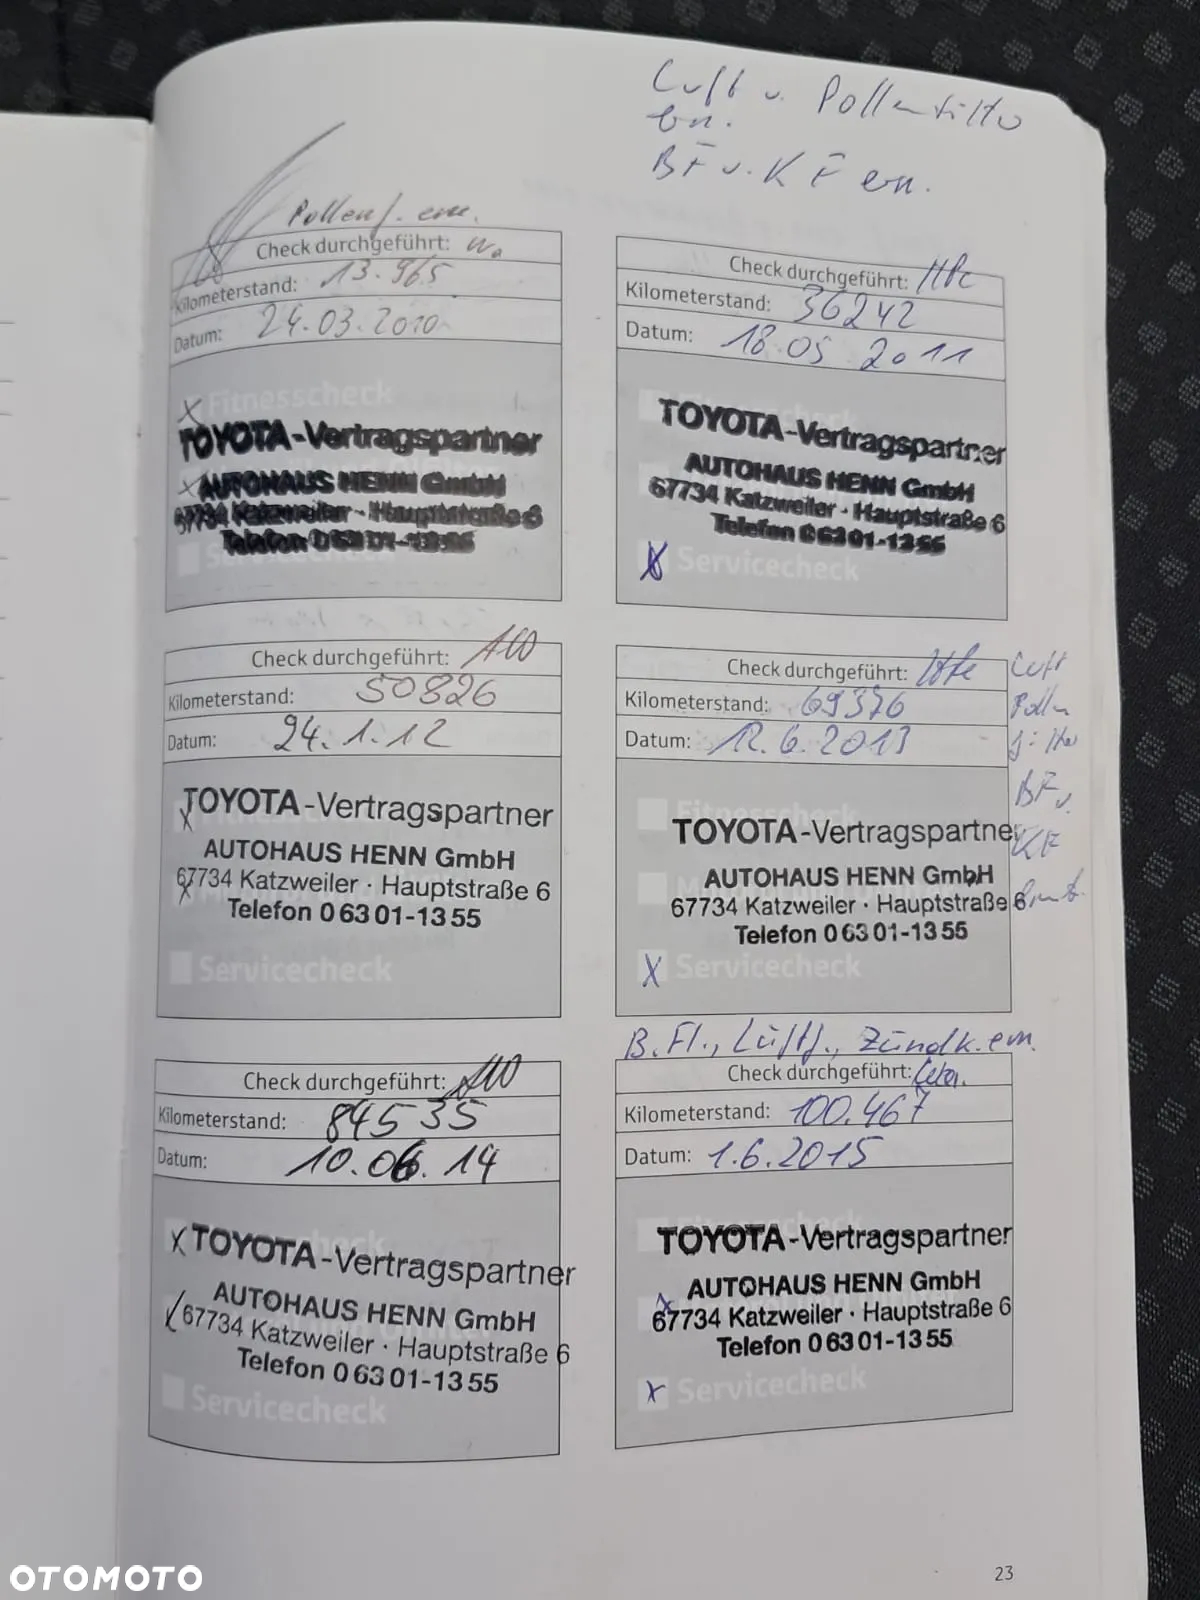 Luft u. Pollenfilter
ern.
BF u. KF ern.
Pollenf. ern.
Check durchgeführt:
Kilometerstand: 13.965
Datum: 24.03.2010
Fitnesscheck
TOYOTA-Vertragspartner
AUTOHAUS HENN GmbH
67734 Katzweiler - Hauptstraße 6
Telefon 0 63 01-13 55
Check durchgeführt:
Kilometerstand: 36242
Datum: 18 05 2011
TOYOTA-Vertragspartner
AUTOHAUS HENN GmbH
67734 Katzweiler - Hauptstraße 6
Telefon 0 63 01-13 55
X Servicecheck
Check durchgeführt:
Kilometerstand: 50826
Datum: 24.1.12
TOYOTA-Vertragspartner
AUTOHAUS HENN GmbH
67734 Katzweiler · Hauptstraße 6
Telefon 0 63 01-13 55
Servicecheck
Check durchgeführt:
Kilometerstand: 69376
Datum: 12.6.2013
Luft
Pollen
filter
BF u.
KF
Fitnesscheck
TOYOTA-Vertragspartner
AUTOHAUS HENN GmbH
67734 Katzweiler · Hauptstraße 6
Telefon 0 63 01-13 55
X Servicecheck
Check durchgeführt:
Kilometerstand: 84535
Datum: 10.06.14
X TOYOTA-Vertragspartner
AUTOHAUS HENN GmbH
67734 Katzweiler · Hauptstraße 6
Telefon 0 63 01-13 55
Servicecheck
B.Fl., Luftf., Zündk. ern.
Check durchgeführt:
Kilometerstand: 100.467
Datum: 1.6.2015
TOYOTA-Vertragspartner
AUTOHAUS HENN GmbH
67734 Katzweiler · Hauptstraße 6
Telefon 0 63 01-13 55
x Servicecheck
23
OTOMOTO